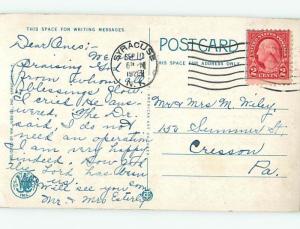 THIS SPACE FOR WRITING MESSAGES.
POSTCARD
THIS SPACE FOR ADDRESS ONLY
SYRACUSE
SEP 10
N.Y.
2 CENTS 2
Dear Ones:
We
Praising God
from whom
blessings flow.
I cried He
The Dr.
said, I do not
need an operation
I am very happy
indeed. How
the Lord has been
Will see you
Mr. & Mrs Esterly
Mr & Mrs M. Wiley,
150 Summer St.
Cresson
Pa.